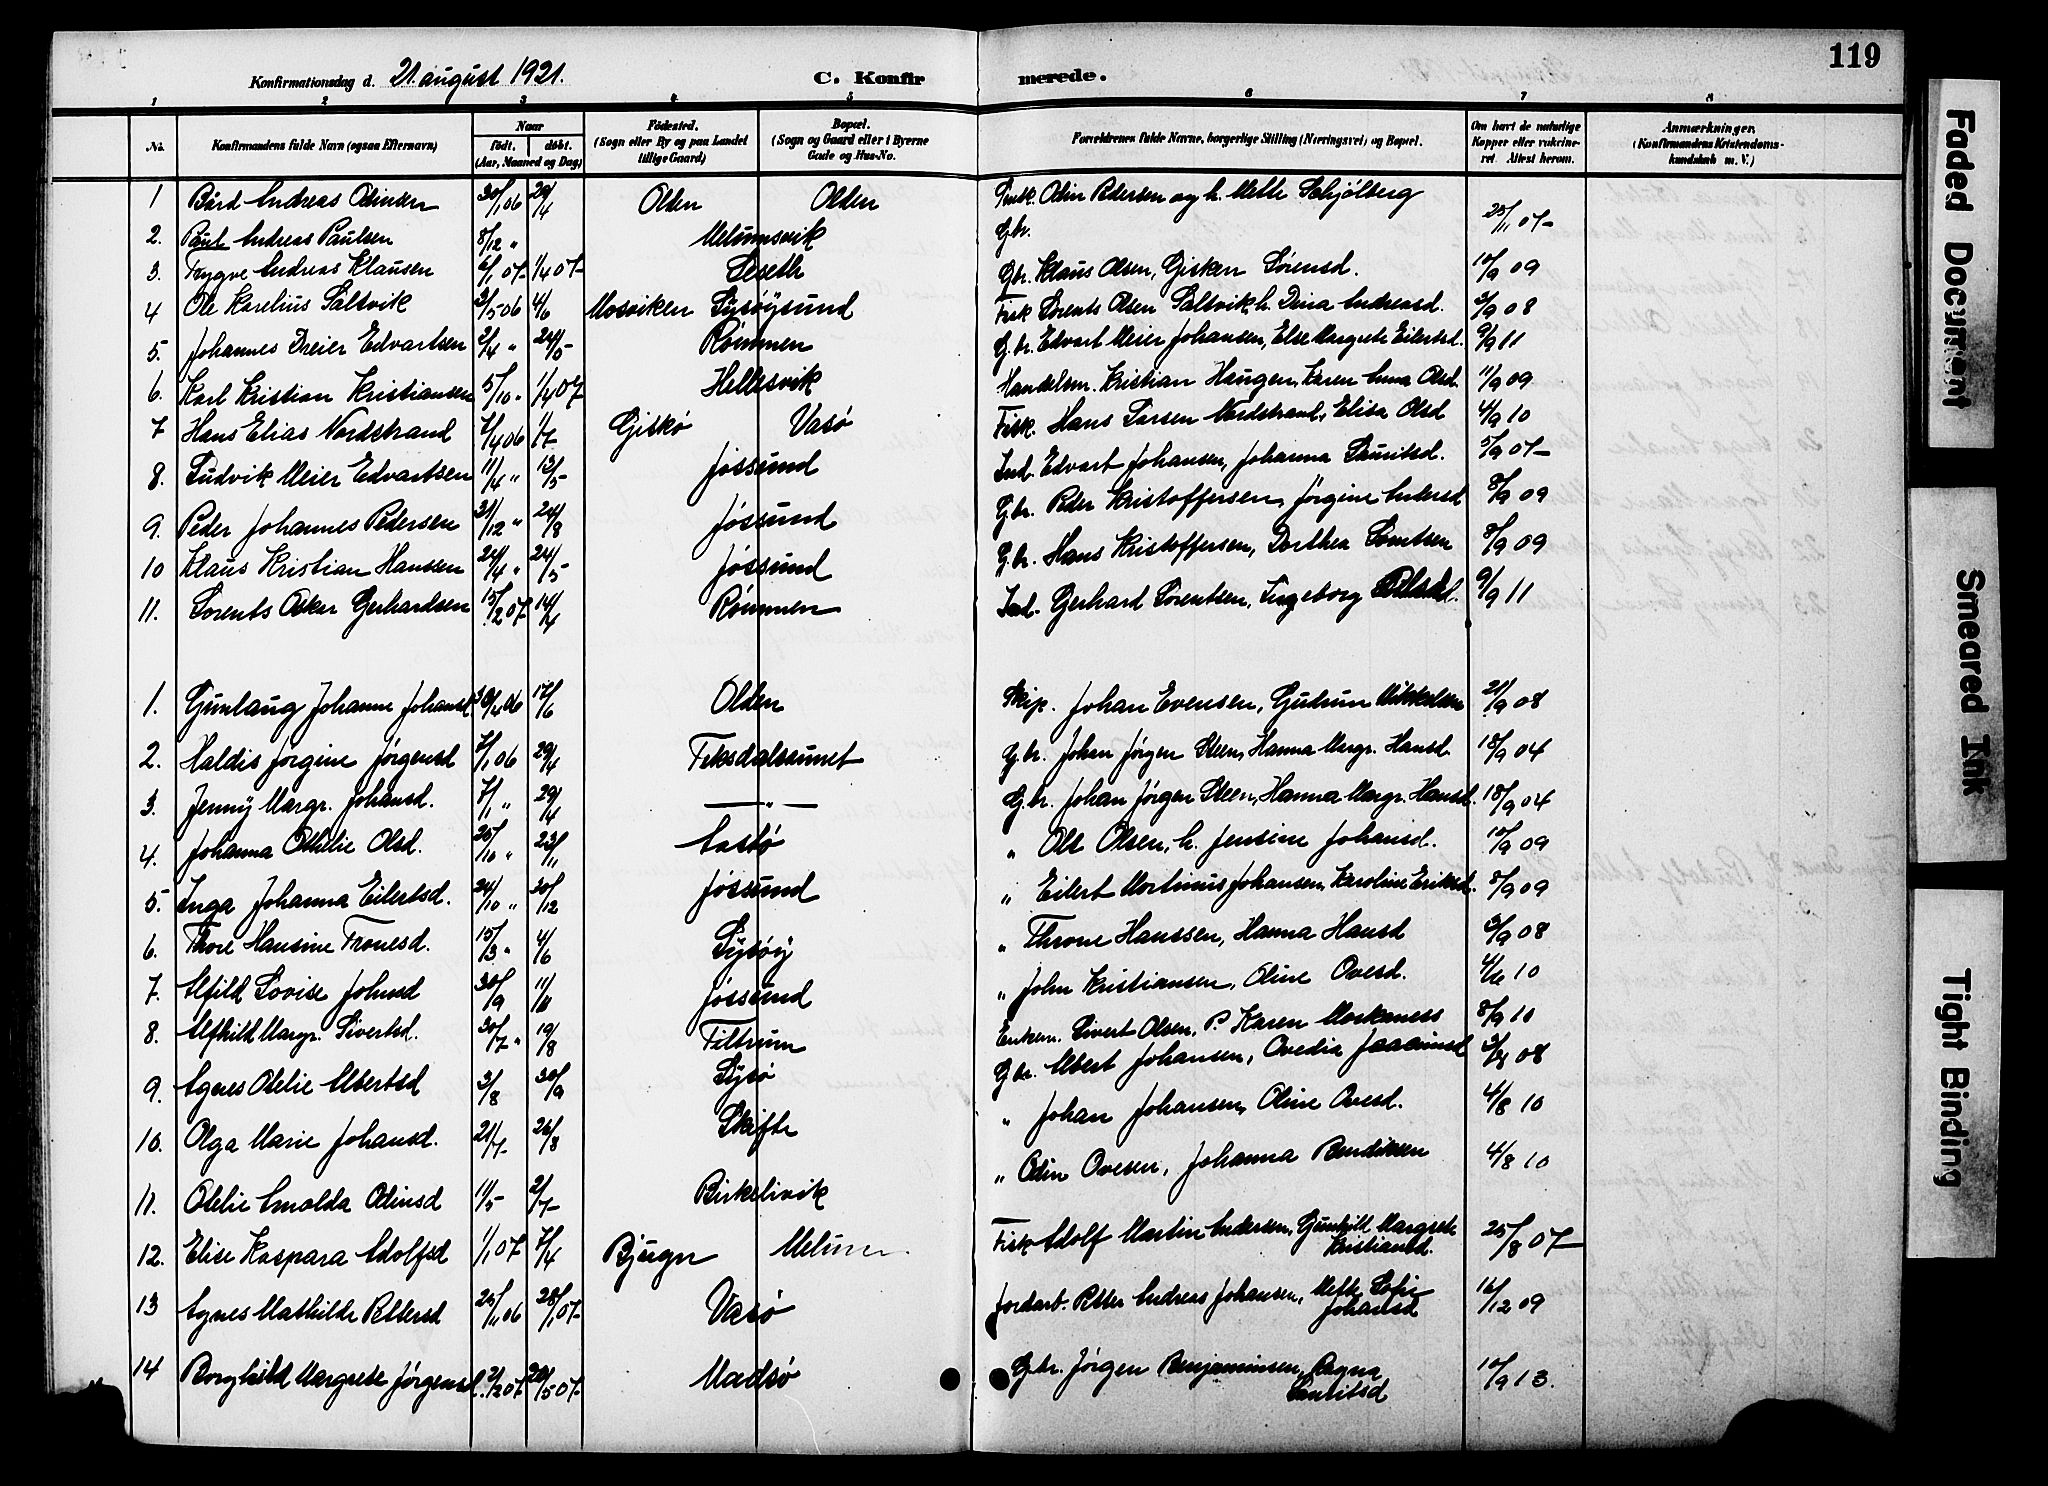 Konfirmationsdag d. 21. august 1921. C. Konfirmerede. 119
1 2 3 4 5 6 7 8
No. Konfirmandens fulde Navn (ogsaa Efternavn) Naar født. døbt. (Aar, Maaned og Dag) Fødested. (Sogn eller By og paa Landet tillige Gaard) Bopæl. (Sogn og Gaard eller i Byerne Gade og Hus-No. Forældrenes fulde Navne, borgerlige Stilling (Næringsvei) og Bopæl. Om havt de naturlige Kopper eller vakcineret. Attest herom. Anmærkninger. (Konfirmandens Kristendomskundskab m. V.)
1 Bård Andreas Odinsen 30/1 06 29/4 Olden Olden Odin Pedersen og h. Mette Schjölberg
2. Paul Andreas Paulsen 8/12 " Melumsvik Gbr. 25/11 07
3. Trygve Andreas Klausen 6/1 07 1/4 07 Leseth Gbr. Klaus Olsen, Gisken Sörensd. 10/9 09
4 Ole Karelius Saltvik 3/5 06 4/6 Mosviken Lysöysund Fisk Lorents Olsen Saltvik, h. Dina Andreasd. 3/9 08
5. Johannes Dreier Edvartsen 2/4 " 24/5 Rømmen G.br. Edvart Meier Johansen, Else Margrete Eilertsd. 9/9 11
6. Karl Kristian Kristiansen 5/10 " 1/4 07 Hellesvik Handelsm. Kristian Haugen, Karen Anna Olsd. 11/9 09
7 Hans Elias Nordstrand 7/4 06 1/7 Giskø Vasø Fisk. Hans Larsen Nordstrand, Elisa Olsd 4/9 10
8. Ludvik Meier Edvartsen 11/4 " 13/5 Jøssund Ind. Edvart Johansen, Johanna Lauritsd. 5/9 07
9. Peder Johannes Pedersen 31/12 " 24/8 Jøssund Gbr. Peder Kristoffersen, Jørgine Andersd 8/9 09
10 Klaus Kristian Hanssen 24/4 " 24/5 Jøssund G.br. Hans Kristoffersen, Dorthea Lorntsen 8/9 09
11. Lorents Oskar Gerhardsen 15/2 07 14/4 Rømmen Ind. Gerhard Lorentsen, Ingeborg 9/9 11
1. Gunlaug Johanne Johansd 30/4 06 17/6 Olden Skip. Johan Evensen, Gudrun Mikkelsen 21/9 08
2. Haldis Jørgine Jørgensd 7/1 06 29/4 Teksdalsaunet G.br. Johan Jørgen Steen, Hanna Margr. Hansd. 18/9 04
3. Jenny Margr. Johansd. 7/1 " 29/4 — " — G.br. Johan Jørgen Steen, Hanna Margr. Hansd. 18/9 04
4. Johanna Othelie Olsd. 25/10 " 23/11 Aastø " Ole Olsen, h. Jensine Johansd. 10/9 09
5. Inga Johanna Eilertsd. 24/10 " 30/12 Jøssund " Eilert Mortinus Johansen, Karoline Eriksd. 8/9 09
6. Thore Hansine Tronesd. 15/3 " 4/6 Lysöy " Throne Hanssen, Hanna Hansd 3/9 08
7. Alfild Lovise Johnsd 30/9 11/11 Jøssund " John Kristiansen, Oline Ovesd. 4/6 10
8. Alfhild Margr. Sivertsd. 30/7 " 19/8 Tiltrum Enkem. Sivert Olsen, P. Karen Morkaness 8/9 10
9. Agnes Otelie Albertsd 3/8 30/9 Lysø Gbr. Albert Johansen, Ovedia 08
10. Olga Marie Johansd. 21/7 26/8 Skifte " Johan Johansen, Oline Ovesd. 4/8 10
11. Otelie Arnolda Odinsd 11/5 2/7 Birkelivik " Odin Ovesen, Johanna Bendiksen 4/8 10
12. Elise Kaspara Adolfsd 1/1 07 7/4 Bjugn Melum Fisk Adolf Martin Andersen, Gunhild Margrete Kristiansd. 25/8 07
13 Agnes Mathilde Pettersd 25/11 06 28/1 07 Vasø Jordarb. Petter Andreas Johansen, Mette Sofie Johansd 16/12 09
14 Borghild Margrete Jørgensd. 2/2 07 20/5 07 Madsø Gbr. Jørgen Benjaminsen, Ragna Lauritsd 10/9 13.
Faded Document
Smeared Ink
Tight Binding